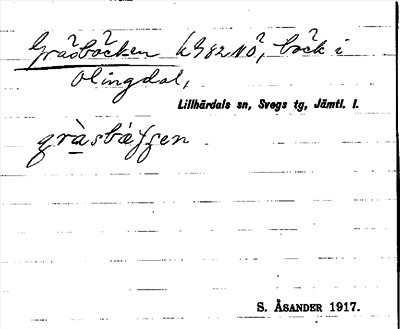 Gräsbäcken k982NÖ, bäck i
Olingdal,
Lillhärdals sn, Svegs tg, Jämtl. l.
S. ÅSANDER 1917.